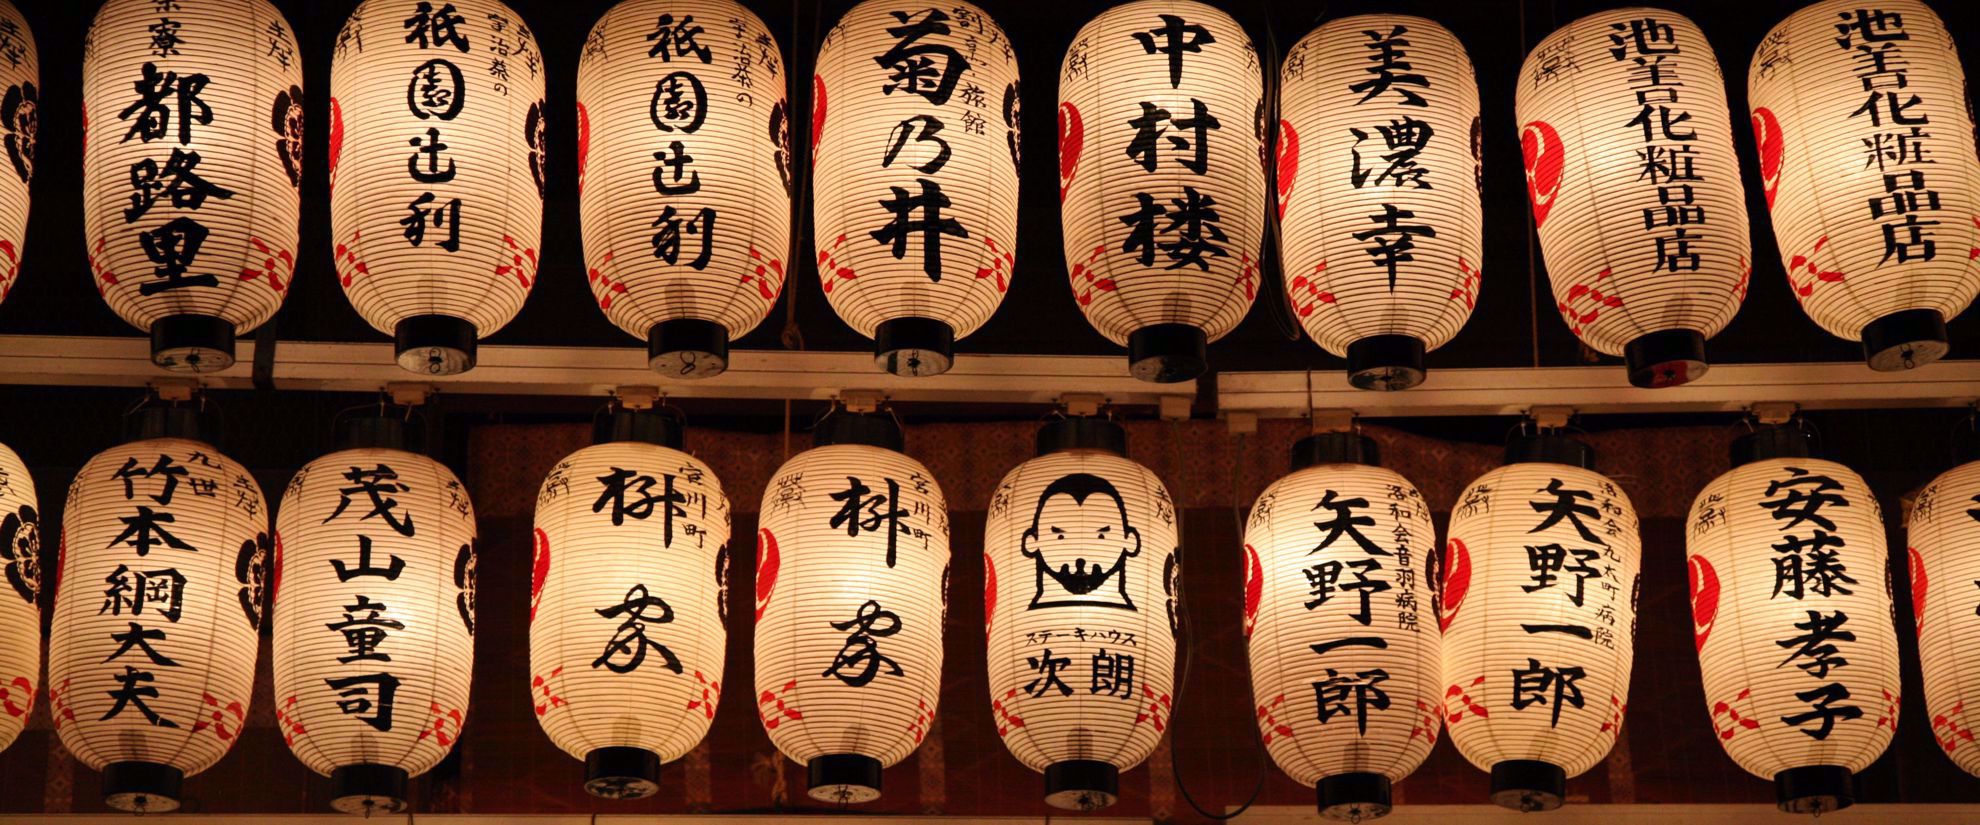 茶寮
都路里
宇治茶の
祇園辻利
宇治茶の
祇園辻利
割烹旅館
菊乃井
中村楼
美濃幸
池善化粧品店
池善化粧品店
九世
竹本綱大夫
茂山童司
宮川町
桝家
宮川町
桝家
ステーキハウス
次朗
洛和会音羽病院
矢野一郎
洛和会丸太町病院
矢野一郎
安藤孝子